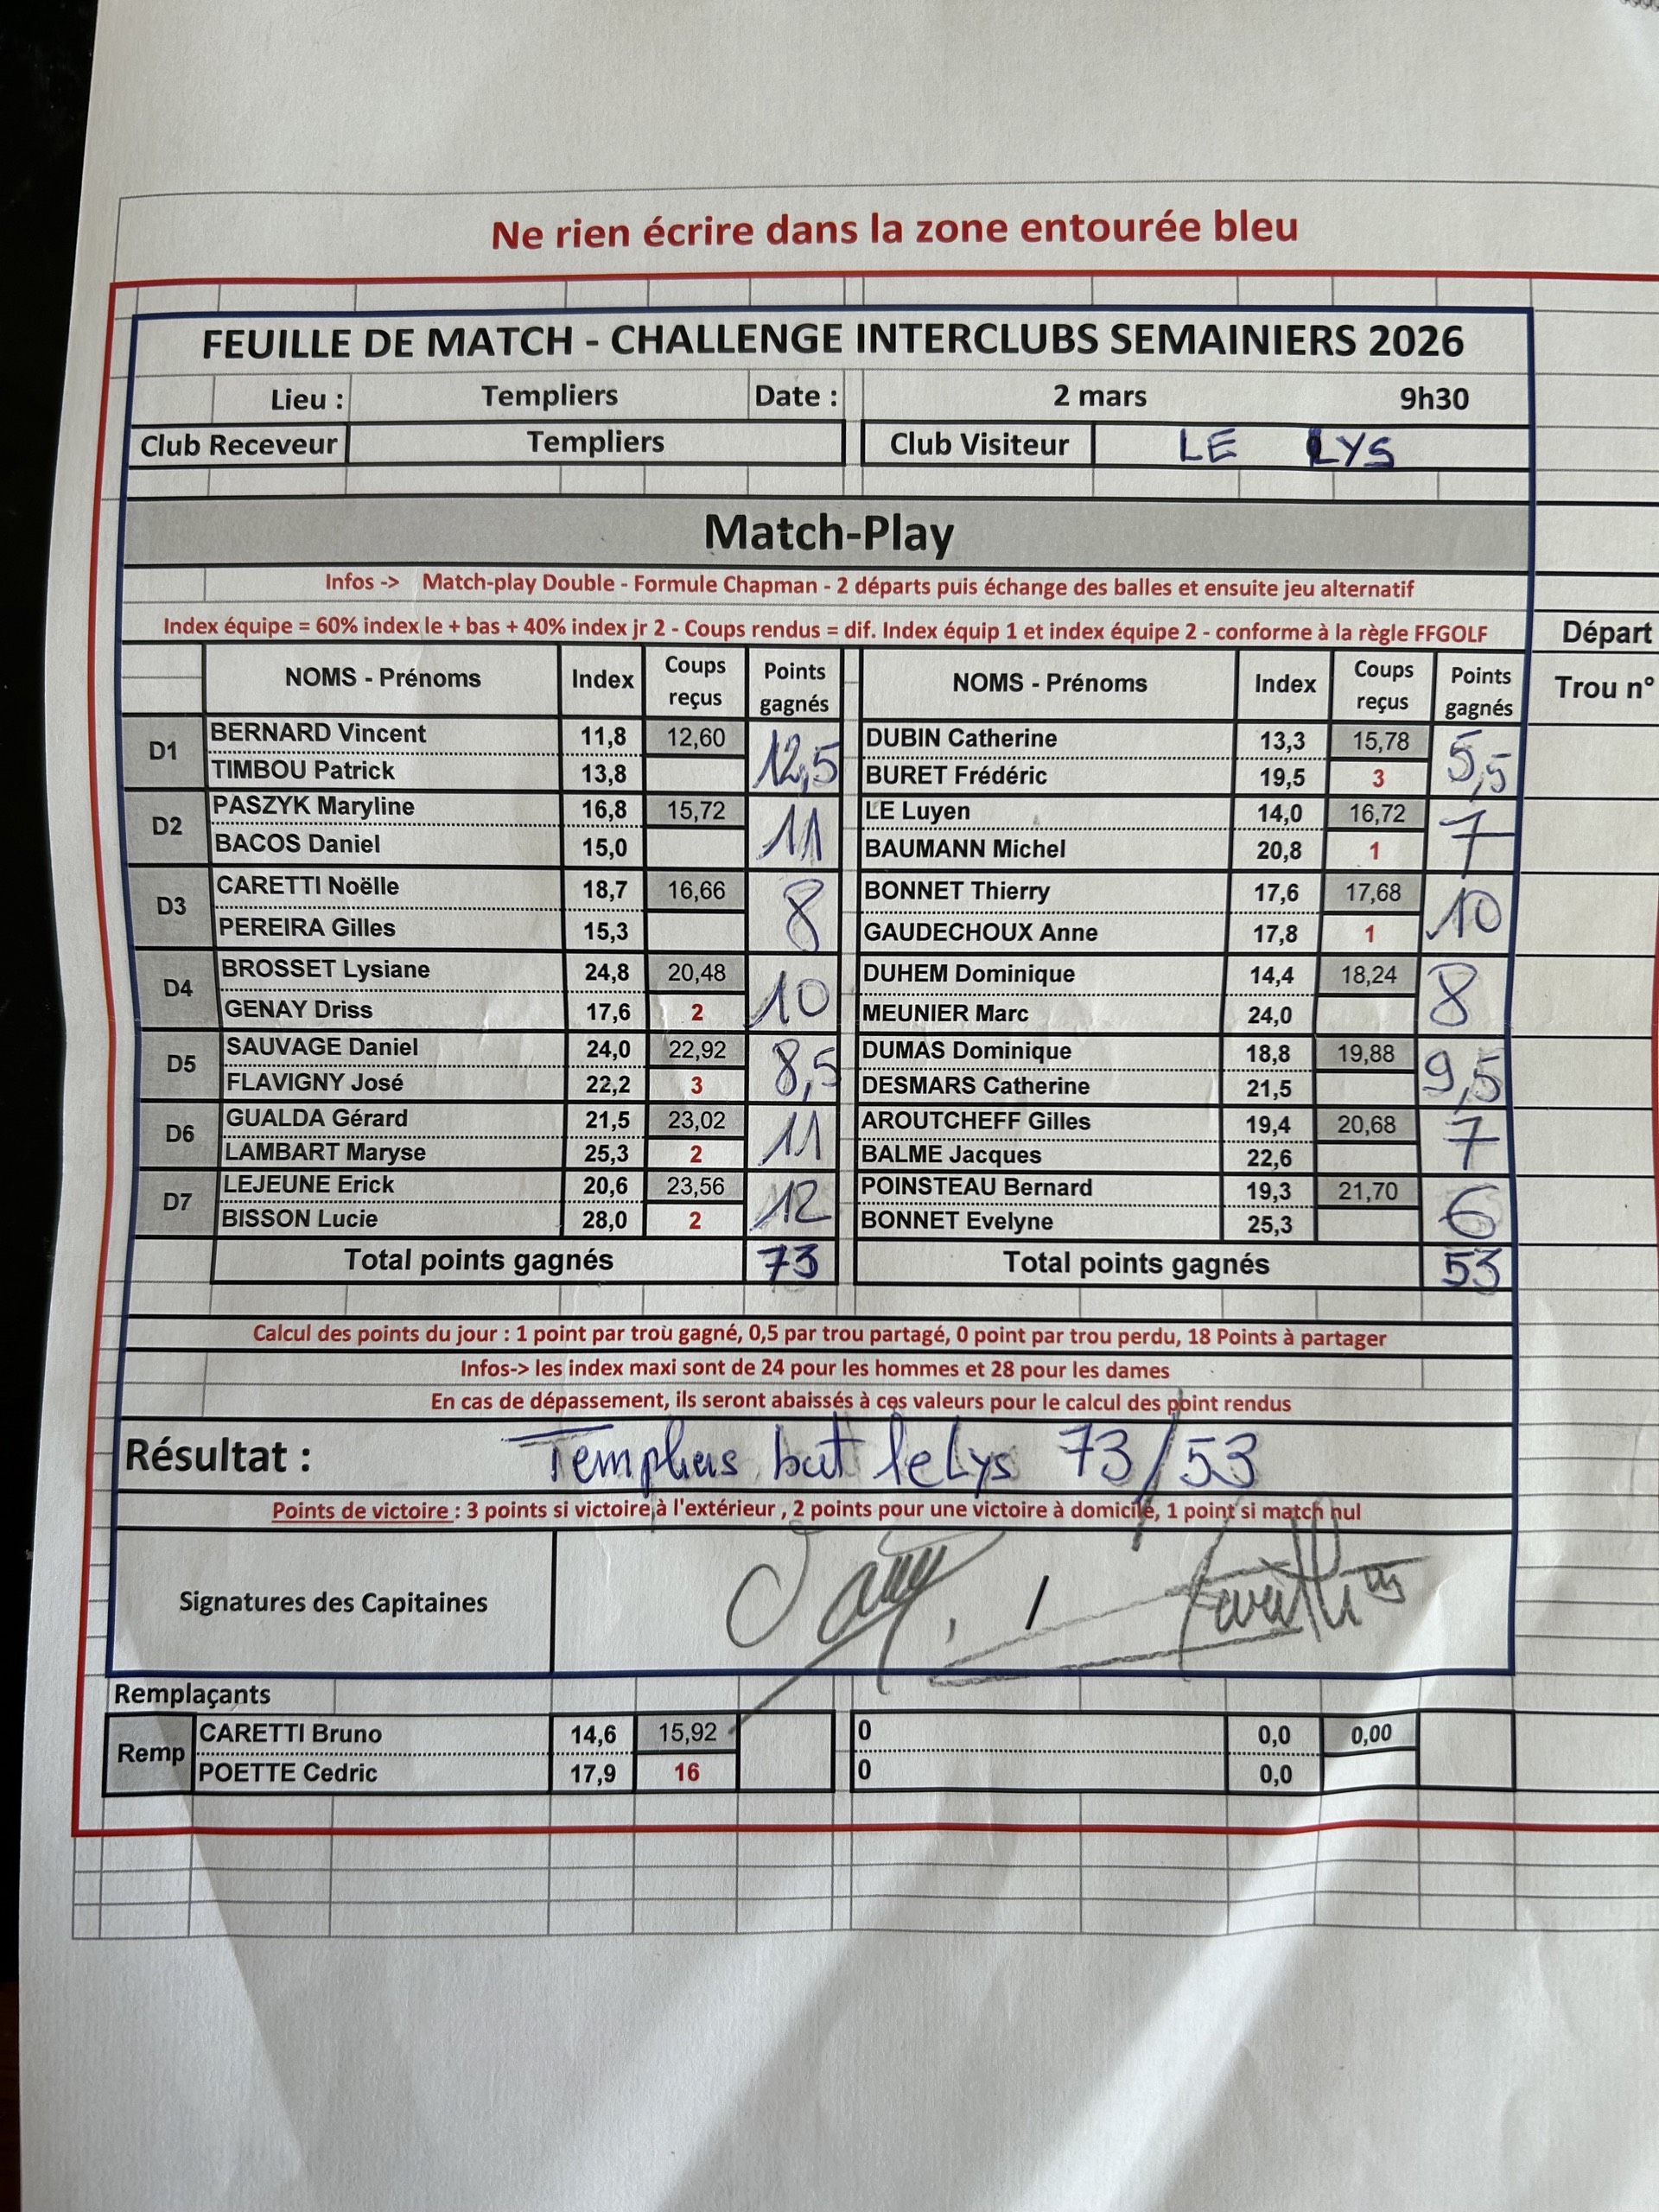 Ne rien écrire dans la zone entourée bleu
FEUILLE DE MATCH - CHALLENGE INTERCLUBS SEMAINIERS 2026
Lieu : Templiers Date : 2 mars 9h30
Club Receveur Templiers Club Visiteur LE LYS
Match-Play
Infos -> Match-play Double - Formule Chapman - 2 départs puis échange des balles et ensuite jeu alternatif
Index équipe = 60% index le + bas + 40% index jr 2 - Coups rendus = dif. Index équip 1 et index équipe 2 - conforme à la règle FFGOLF Départ
NOMS - Prénoms Index Coups reçus Points gagnés NOMS - Prénoms Index Coups reçus Points gagnés Trou n°
D1 BERNARD Vincent 11,8 12,60 12,5 DUBIN Catherine 13,3 15,78 5,5
TIMBOU Patrick 13,8 BURET Frédéric 19,5 3
D2 PASZYK Maryline 16,8 15,72 11 LE Luyen 14,0 16,72 7
BACOS Daniel 15,0 BAUMANN Michel 20,8 1
D3 CARETTI Noëlle 18,7 16,66 8 BONNET Thierry 17,6 17,68 10
PEREIRA Gilles 15,3 GAUDECHOUX Anne 17,8 1
D4 BROSSET Lysiane 24,8 20,48 10 DUHEM Dominique 14,4 18,24 8
GENAY Driss 17,6 2 MEUNIER Marc 24,0
D5 SAUVAGE Daniel 24,0 22,92 8,5 DUMAS Dominique 18,8 19,88 9,5
FLAVIGNY José 22,2 3 DESMARS Catherine 21,5
D6 GUALDA Gérard 21,5 23,02 11 AROUTCHEFF Gilles 19,4 20,68 7
LAMBART Maryse 25,3 2 BALME Jacques 22,6
D7 LEJEUNE Erick 20,6 23,56 12 POINSTEAU Bernard 19,3 21,70 6
BISSON Lucie 28,0 2 BONNET Evelyne 25,3
Total points gagnés 73 Total points gagnés 53
Calcul des points du jour : 1 point par trou gagné, 0,5 par trou partagé, 0 point par trou perdu, 18 Points à partager
Infos-> les index maxi sont de 24 pour les hommes et 28 pour les dames
En cas de dépassement, ils seront abaissés à ces valeurs pour le calcul des point rendus
Résultat : Templiers bat le Lys 73/53
Points de victoire : 3 points si victoire à l'extérieur , 2 points pour une victoire à domicile, 1 point si match nul
Signatures des Capitaines /
Remplaçants
Remp CARETTI Bruno 14,6 15,92 0 0,0 0,00
POETTE Cedric 17,9 16 0 0,0